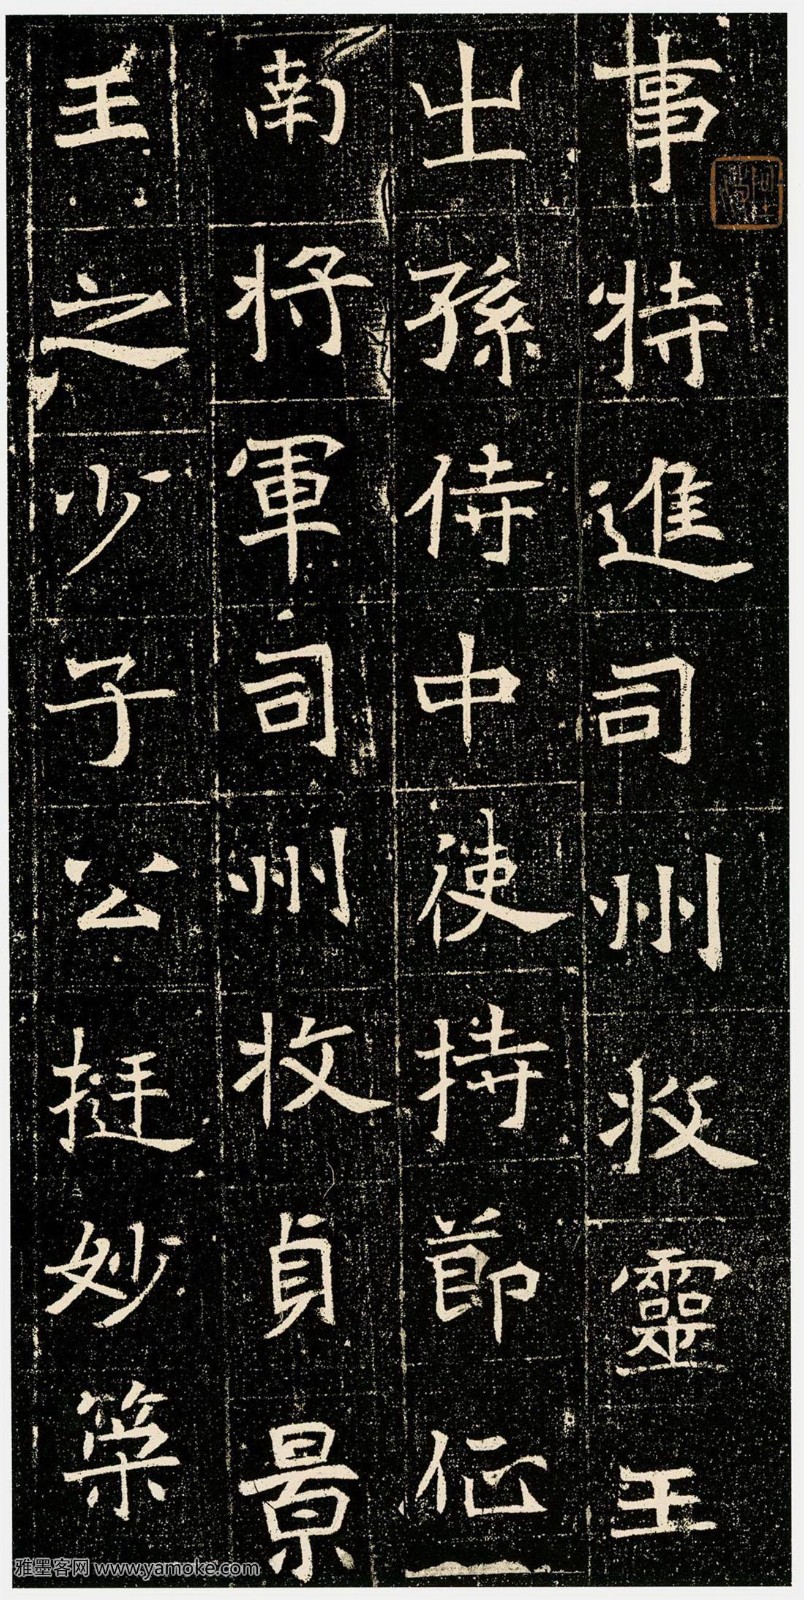 事特進司州牧靈王
之孫侍中使持節征
南將軍司州牧貞景
王之少子公挺妙築
雅墨客网 www.yamoke.com